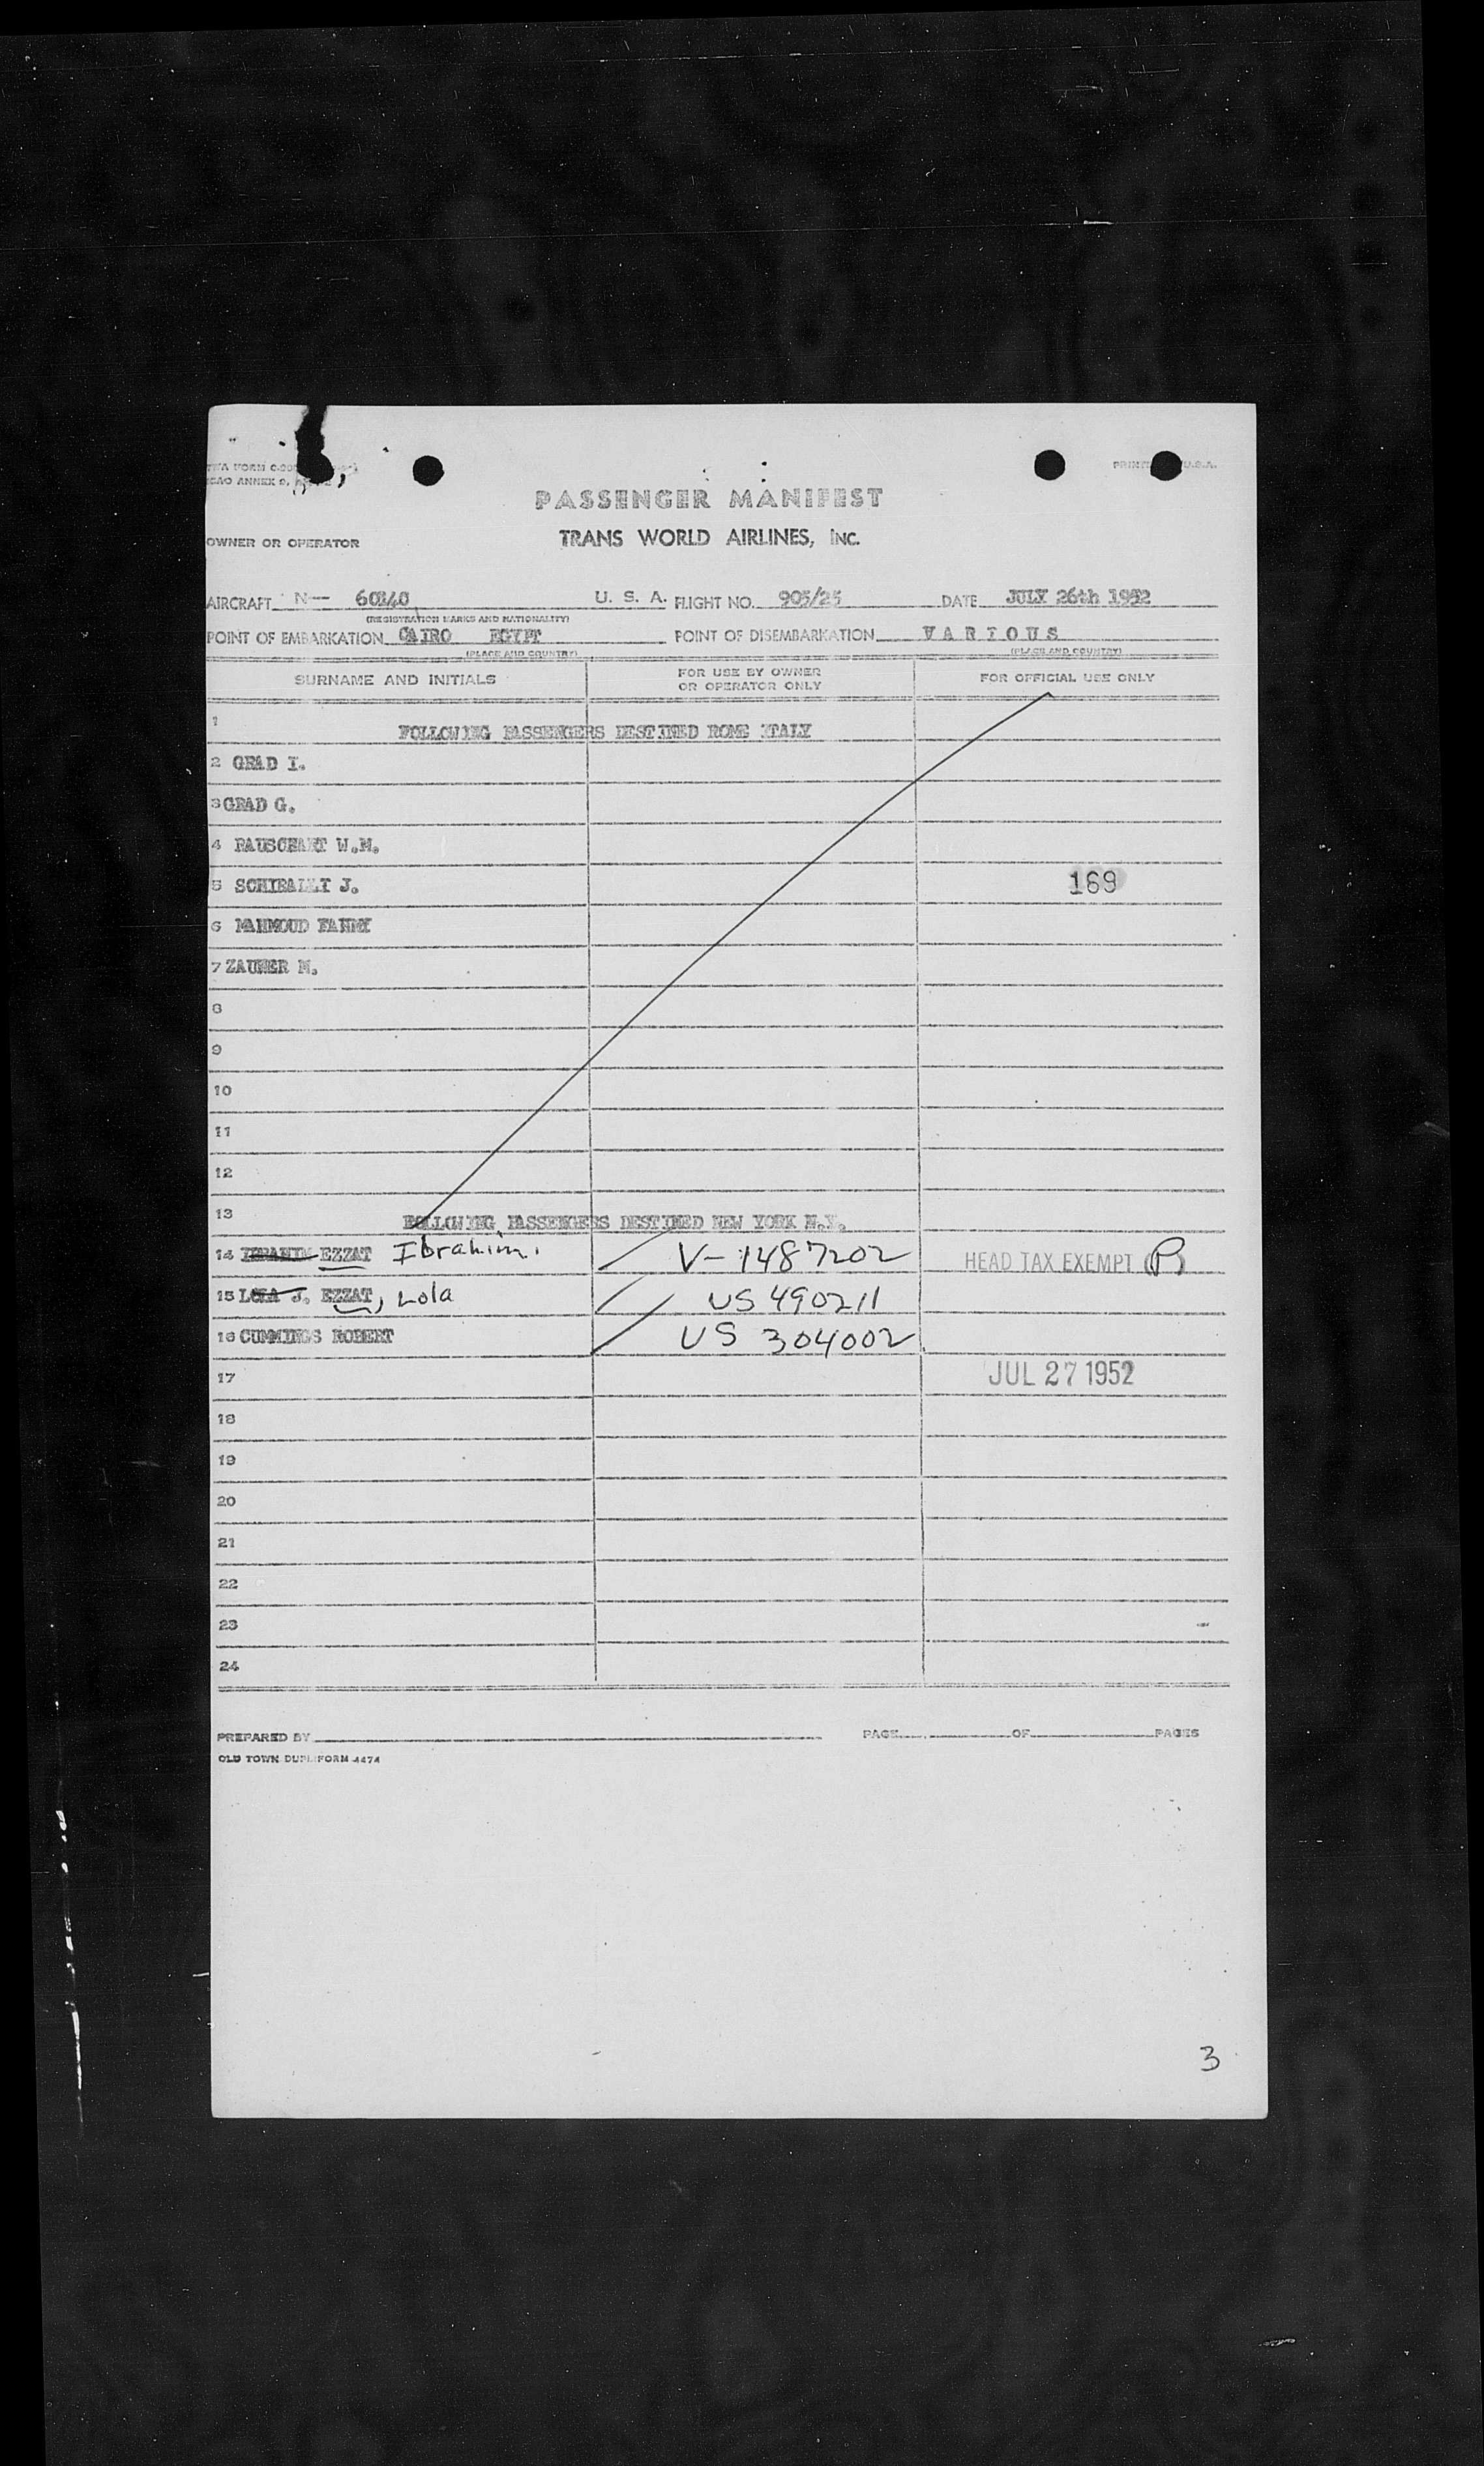 PRINTED U.S.A.
ICAO ANNEX 9,
PASSENGER MANIFEST
OWNER OR OPERATOR TRANS WORLD AIRLINES, INC.
AIRCRAFT N— U. S. A. FLIGHT NO. 905/25 DATE JULY 26th 1952
(REGISTRATION MARKS AND NATIONALITY)
POINT OF EMBARKATION CAIRO EGYPT POINT OF DISEMBARKATION VARIOUS
(PLACE AND COUNTRY) (PLACE AND COUNTRY)
SURNAME AND INITIALS FOR USE BY OWNER OR OPERATOR ONLY FOR OFFICIAL USE ONLY
1 FOLLOWING PASSENGERS DESTINED ROME ITALY
2 GRAD I.
3 GRAD G.
4 W.M.
5 J. 169
6 MAHMOUD FAHMY
7 ZAUNER M.
8
9
10
11
12
13 FOLLOWING PASSENGERS DESTINED NEW YORK N.Y.
14 IBRAHIM EZZAT Ibrahim. V-1487202 HEAD TAX EXEMPT (P)
15 LOLA J. EZZAT, Lola US 490211
16 CUMMINGS ROBERT US 304002
17 JUL 27 1952
18
19
20
21
22
23
24
PREPARED BY PAGE OF PAGES
OLD TOWN DUPLIFORM 4474
3